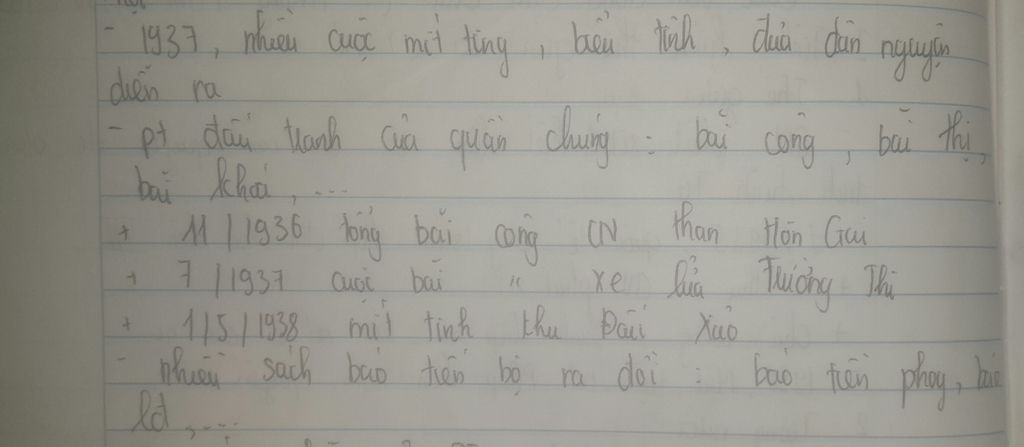 - 1937, nhiều cuộc mit ting, biểu tình, đưa dân nguyện
diễn ra
- pt đấu tranh của quần chúng : bãi công, bãi thị,
bãi khoá, ...
+ 11/1936 tổng bãi công CN than Hòn Gai
+ 7/1937 cuộc bãi " xe lửa Trường Thi
+ 1/5/1938 mít tinh khu Đấu Xảo
- nhiều sách báo tiến bộ ra đời : báo tiền phog, báo
lđ, ...